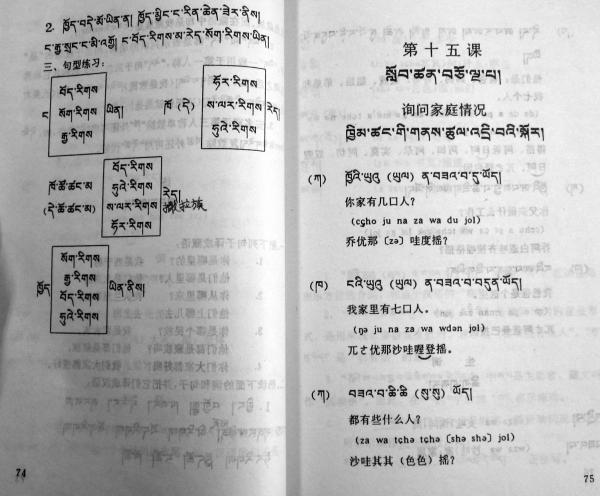 2. ཁྱོད་བདེ་མོ་ཡིན་ན། ཁྱོད་མྱིང་ང་རིན་ཆེན་ཟེར་ནིས།
ང་རྒྱ་སྲང་ང་མི་འགྲོ། ང་བོད་རིགས་མ་རེད་སོག་རིགས་ཡིན།
三、句型练习：
ང
བོད་རིགས
སོག་རིགས
རྒྱ་རིགས
ཡིན།
ཁོ (དེ)
ཧོར་རིགས
ས་ལར་རིགས
ཧུའེ་རིགས
རེད།
ཁོ་ཚོ་ཚང་མ
(དེ་ཚོ་ཚང་མ)
བོད་རིགས
ཧུའེ་རིགས
ས་ལར་རིགས
ཧོར་རིགས
རེད།
撒拉族
ཁྱོད
སོག་རིགས
རྒྱ་རིགས
བོད་རིགས
ཧུའེ་རིགས
ཡིན་ནིས།
74
第十五课
སློབ་ཚན་བཅོ་ལྔ་པ།
询问家庭情况
ཁྱིམ་ཚང་གི་གནས་ཚུལ་འདྲི་བའི་སྐོར།
(ཀ) ཁྱོའི་ཡུའུ (ཡུལ) ན་བཟའ་བ་དུ་ཡོད།
你家有几口人？
(cçho ju na za wa du jol)
乔优那〔zə〕哇度摇？
(ཁ) ངའི་ཡུའུ (ཡུལ) ན་བཟའ་བ་བདུན་ཡོད།
我家里有七口人。
(ŋə ju na za wa wdən jol)
兀さ优那沙哇喔登摇。
(ཀ) བཟའ་བ་ཆི་ཆི (སུ་སུ) ཡོད།
都有些什么人？
(za wa tçhə tçhə〔shə shə〕jol)
沙哇其其（色色）摇？
75